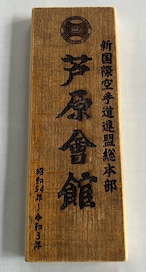 新国際空手道連盟総本部
芦原會館
昭和54年－令和3年